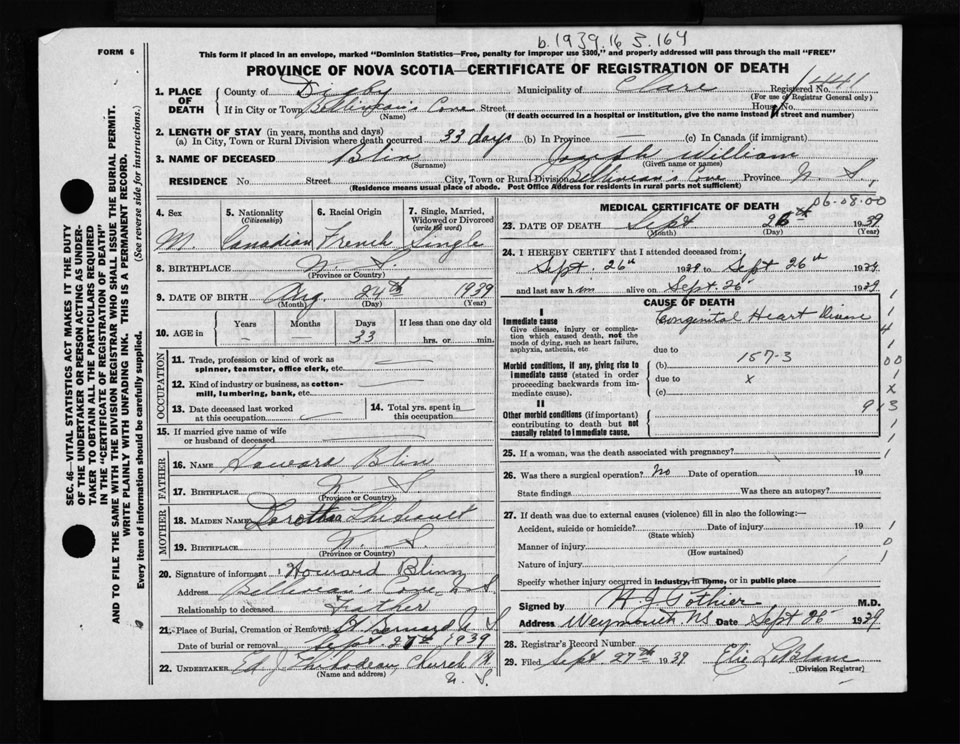 b.1939.16 3.164
FORM 6
This form if placed in an envelope, marked "Dominion Statistics—Free, penalty for improper use $300," and properly addressed will pass through the mail "FREE"
PROVINCE OF NOVA SCOTIA—CERTIFICATE OF REGISTRATION OF DEATH
1. PLACE OF DEATH
County of Digby Municipality of Clare Registered No. 1441
(For use of Registrar General only)
If in City or Town Belliveau's Cove Street House No.
(Name) (If death occurred in a hospital or institution, give the name instead of street and number)
2. LENGTH OF STAY (in years, months and days)
(a) In City, Town or Rural Division where death occurred 33 days (b) In Province — (c) In Canada (if immigrant)
3. NAME OF DECEASED Blin Joseph William
(Surname) (Given name or names)
RESIDENCE No. Street City, Town or Rural Division Belliveau's Cove Province N. S.
(Residence means usual place of abode. Post Office Address for residents in rural parts not sufficient)
4. Sex 5. Nationality (Citizenship) 6. Racial Origin 7. Single, Married, Widowed or Divorced (write the word)
M. Canadian French Single
8. BIRTHPLACE N. S.
(Province or Country)
9. DATE OF BIRTH Aug. 24th 1939
(Month) (Day) (Year)
10. AGE in Years Months Days If less than one day old
— — 33 hrs. or min.
OCCUPATION
11. Trade, profession or kind of work as spinner, teamster, office clerk, etc. —
12. Kind of industry or business, as cotton-mill, lumbering, bank, etc. —
13. Date deceased last worked at this occupation
14. Total yrs. spent in this occupation
15. If married give name of wife or husband of deceased
FATHER
16. NAME Howard Blin
17. BIRTHPLACE N. S.
(Province or Country)
MOTHER
18. MAIDEN NAME Dorothea Thibault
19. BIRTHPLACE N. S.
(Province or Country)
20. Signature of informant Howard Blinn
Address Belliveau's Cove, N. S.
Relationship to deceased Father
21. Place of Burial, Cremation or Removal St Bernard N S
Date of burial or removal Sept. 27th 1939
22. UNDERTAKER Ed J Thibodeau Church
(Name and address) N. S.
MEDICAL CERTIFICATE OF DEATH
06-08-00
23. DATE OF DEATH Sept 26th 1939
(Month) (Day) (Year)
24. I HEREBY CERTIFY that I attended deceased from:
Sept. 26th 1939 to Sept 26th 1939
and last saw him alive on Sept. 26 1939
CAUSE OF DEATH
I
Immediate cause
Give disease, injury or complication which caused death, not the mode of dying, such as heart failure, asphyxia, asthenia, etc
Congenital Heart Disease
due to
Morbid conditions, if any, giving rise to immediate cause (stated in order proceeding backwards from immediate cause).
(b) 157-3
due to x
(c)
II
Other morbid conditions (if important) contributing to death but not causally related to immediate cause.
1
1
4
1
00
1
x
9 13
1
1
25. If a woman, was the death associated with pregnancy?
26. Was there a surgical operation? No Date of operation 19
State findings Was there an autopsy?
27. If death was due to external causes (violence) fill in also the following:—
Accident, suicide or homicide? Date of injury 19
(State which)
Manner of injury
(How sustained)
Nature of injury
Specify whether injury occurred in industry, in home, or in public place
1
0
1
Signed by H J Pothier M.D.
Address Weymouth NS Date Sept 26 1939
28. Registrar's Record Number
29. Filed Sept 27th 1939 Elie LeBlanc
(Division Registrar)
SEC. 46—VITAL STATISTICS ACT MAKES IT THE DUTY
OF THE UNDERTAKER OR PERSON ACTING AS UNDER-
TAKER TO OBTAIN ALL THE PARTICULARS REQUIRED
IN THE "CERTIFICATE OF REGISTRATION OF DEATH"
AND TO FILE THE SAME WITH THE DIVISION REGISTRAR WHO SHALL ISSUE THE BURIAL PERMIT.
WRITE PLAINLY WITH UNFADING INK. THIS IS A PERMANENT RECORD.
Every item of information should be carefully supplied. (See reverse side for instructions.)